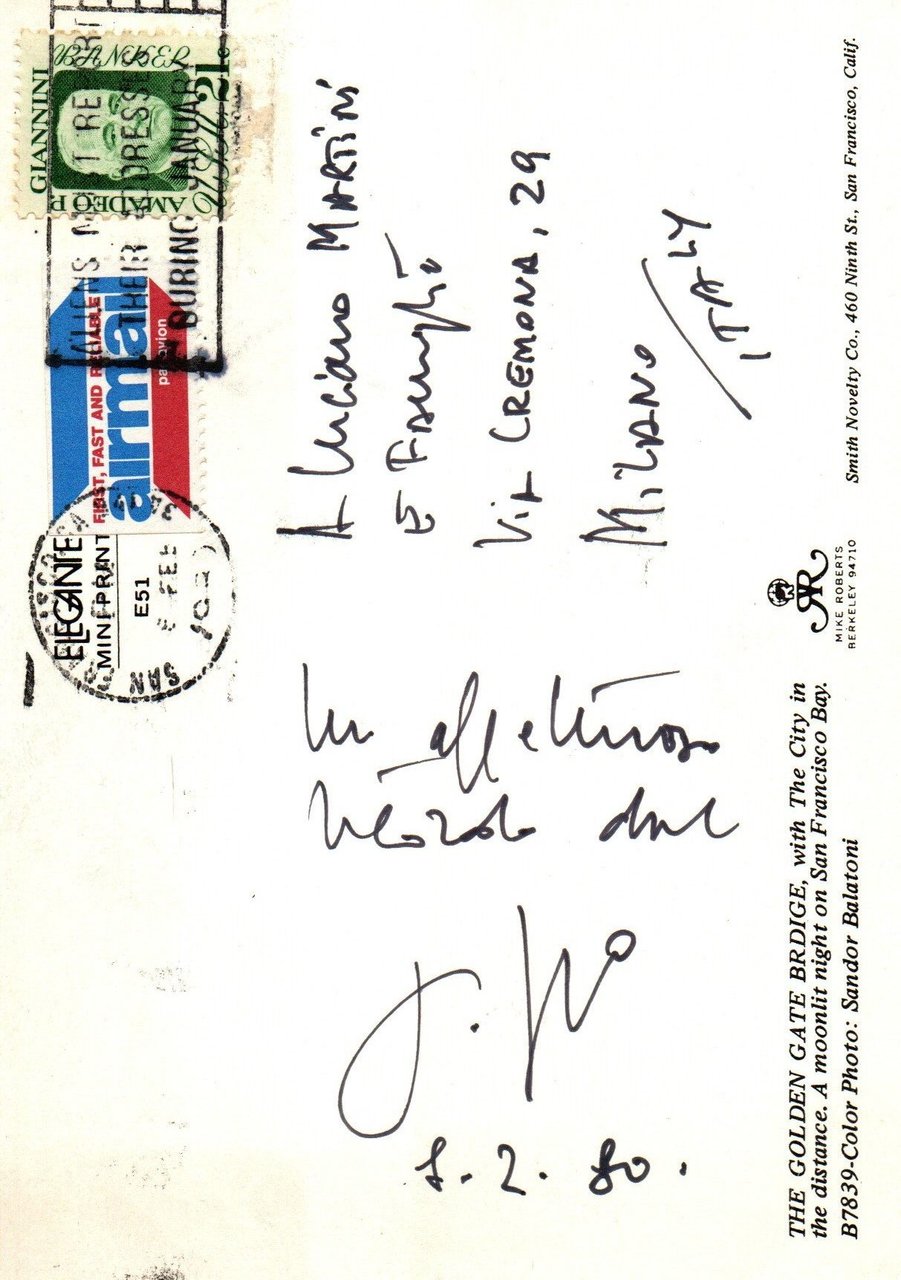 THE GOLDEN GATE BRDIGE, with The City in
the distance. A moonlit night on San Francisco Bay.
B7839-Color Photo: Sandor Balatoni
Un affettuoso
ricordo dal
2. 80.
ELEGANTE
MINI-PRINT
E51
SAN FRANCISCO CA
FEB
FIRST, FAST AND RELIABLE
airmail
par avion
ALIENS MUST REPORT
THEIR ADDRESSES
DURING JANUARY
AMADEO P. GIANNINI
21c
A Luciano MARTINI
E Famiglia
Via CREMONA, 29
MILANO
ITALY
MIKE ROBERTS
BERKELEY 94710
Smith Novelty Co., 460 Ninth St., San Francisco, Calif.